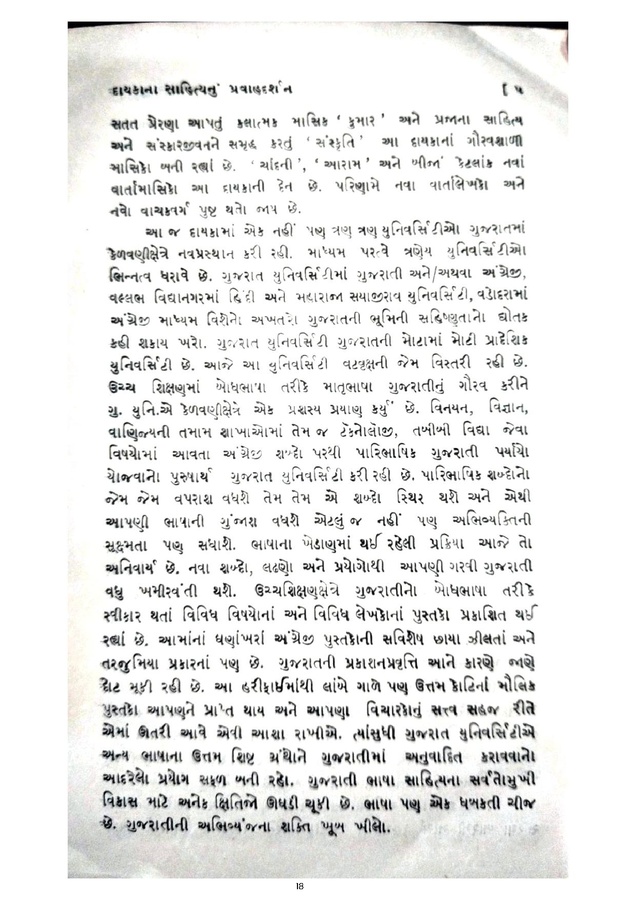 દાયકાના સાહિત્યનું પ્રવાહદર્શન [ ૫
સતત પ્રેરણા આપતું કલાત્મક માસિક ‘ કુમાર ’ અને પ્રજાના સાહિત્ય
અને સંસ્કારજીવનને સમૃદ્ધ કરતું ‘ સંસ્કૃતિ ’ આ દાયકાનાં ગૌરવશાળી
માસિકો બની રહ્યાં છે. ‘ ચાંદની ’, ‘ આરામ ’ અને બીજાં કેટલાંક નવાં
વાર્તામાસિકો આ દાયકાની દેન છે. પરિણામે નવા વાર્તાલેખકો અને
નવો વાચકવર્ગ પુષ્ટ થતો જાય છે.
આ જ દાયકામાં એક નહીં પણ ત્રણ ત્રણ યુનિવર્સિટીઓ ગુજરાતમાં
કેળવણીક્ષેત્રે નવપ્રસ્થાન કરી રહી. માધ્યમ પરત્વે ત્રણેય યુનિવર્સિટીઓ
ભિન્નત્વ ધરાવે છે. ગુજરાત યુનિવર્સિટીમાં ગુજરાતી અને/અથવા અંગ્રેજી,
વલ્લભ વિદ્યાનગરમાં હિંદી અને મહારાજા સયાજીરાવ યુનિવર્સિટી, વડોદરામાં
અંગ્રેજી માધ્યમ વિશેનો અખતરો ગુજરાતની ભૂમિની સહિષ્ણુતાનો દ્યોતક
કહી શકાય ખરો. ગુજરાત યુનિવર્સિટી ગુજરાતની મોટામાં મોટી પ્રાદેશિક
યુનિવર્સિટી છે. આજે આ યુનિવર્સિટી વટવૃક્ષની જેમ વિસ્તરી રહી છે.
ઉચ્ચ શિક્ષણમાં બોધભાષા તરીકે માતૃભાષા ગુજરાતીનું ગૌરવ કરીને
ગુ. યુનિ.એ કેળવણીક્ષેત્રે એક પ્રશસ્ય પ્રયાણ કર્યું છે. વિનયન, વિજ્ઞાન,
વાણિજ્યની તમામ શાખાઓમાં તેમ જ ટેકનોલોજી, તબીબી વિદ્યા જેવા
વિષયોમાં આવતા અંગ્રેજી શબ્દો પરથી પારિભાષિક ગુજરાતી પર્યાયો
યોજવાનો પુરુષાર્થ ગુજરાત યુનિવર્સિટી કરી રહી છે. પારિભાષિક શબ્દોનો
જેમ જેમ વપરાશ વધશે તેમ તેમ એ શબ્દો સ્થિર થશે અને એથી
આપણી ભાષાની ગુંજાશ વધશે એટલું જ નહીં પણ અભિવ્યક્તિની
સૂક્ષ્મતા પણ સધાશે. ભાષાના ખેડાણમાં થઈ રહેલી પ્રક્રિયા આજે તો
અનિવાર્ય છે. નવા શબ્દો, લઢણો અને પ્રયોગોથી આપણી ગરવી ગુજરાતી
વધુ ખમીરવંતી થશે. ઉચ્ચશિક્ષણક્ષેત્રે ગુજરાતીનો બોધભાષા તરીકે
સ્વીકાર થતાં વિવિધ વિષયોનાં અને વિવિધ લેખકોનાં પુસ્તકો પ્રકાશિત થઈ
રહ્યાં છે. આમાંનાં ઘણાંખરાં અંગ્રેજી પુસ્તકોની સવિશેષ છાયા ઝીલતાં અને
તરજુમિયા પ્રકારનાં પણ છે. ગુજરાતની પ્રકાશનપ્રવૃત્તિ આને કારણે જાણે
દોટ મૂકી રહી છે. આ હરીફાઈમાંથી લાંબે ગાળે પણ ઉત્તમ કોટિનાં મૌલિક
પુસ્તકો આપણને પ્રાપ્ત થાય અને આપણા વિચારકોનું સત્ત્વ સહજ રીતે
એમાં ઊતરી આવે એવી આશા રાખીએ. ત્યાંસુધી ગુજરાત યુનિવર્સિટીએ
અન્ય ભાષાના ઉત્તમ શિષ્ટ ગ્રંથોને ગુજરાતીમાં અનુવાદિત કરાવવાનો
આદરેલો પ્રયોગ સફળ બની રહો. ગુજરાતી ભાષા સાહિત્યના સર્વતોમુખી
વિકાસ માટે અનેક ક્ષિતિજો ઊઘડી ચૂકી છે. ભાષા પણ એક ધબકતી ચીજ
છે. ગુજરાતીની અભિવ્યંજના શક્તિ ખૂબ ખીલો.
18